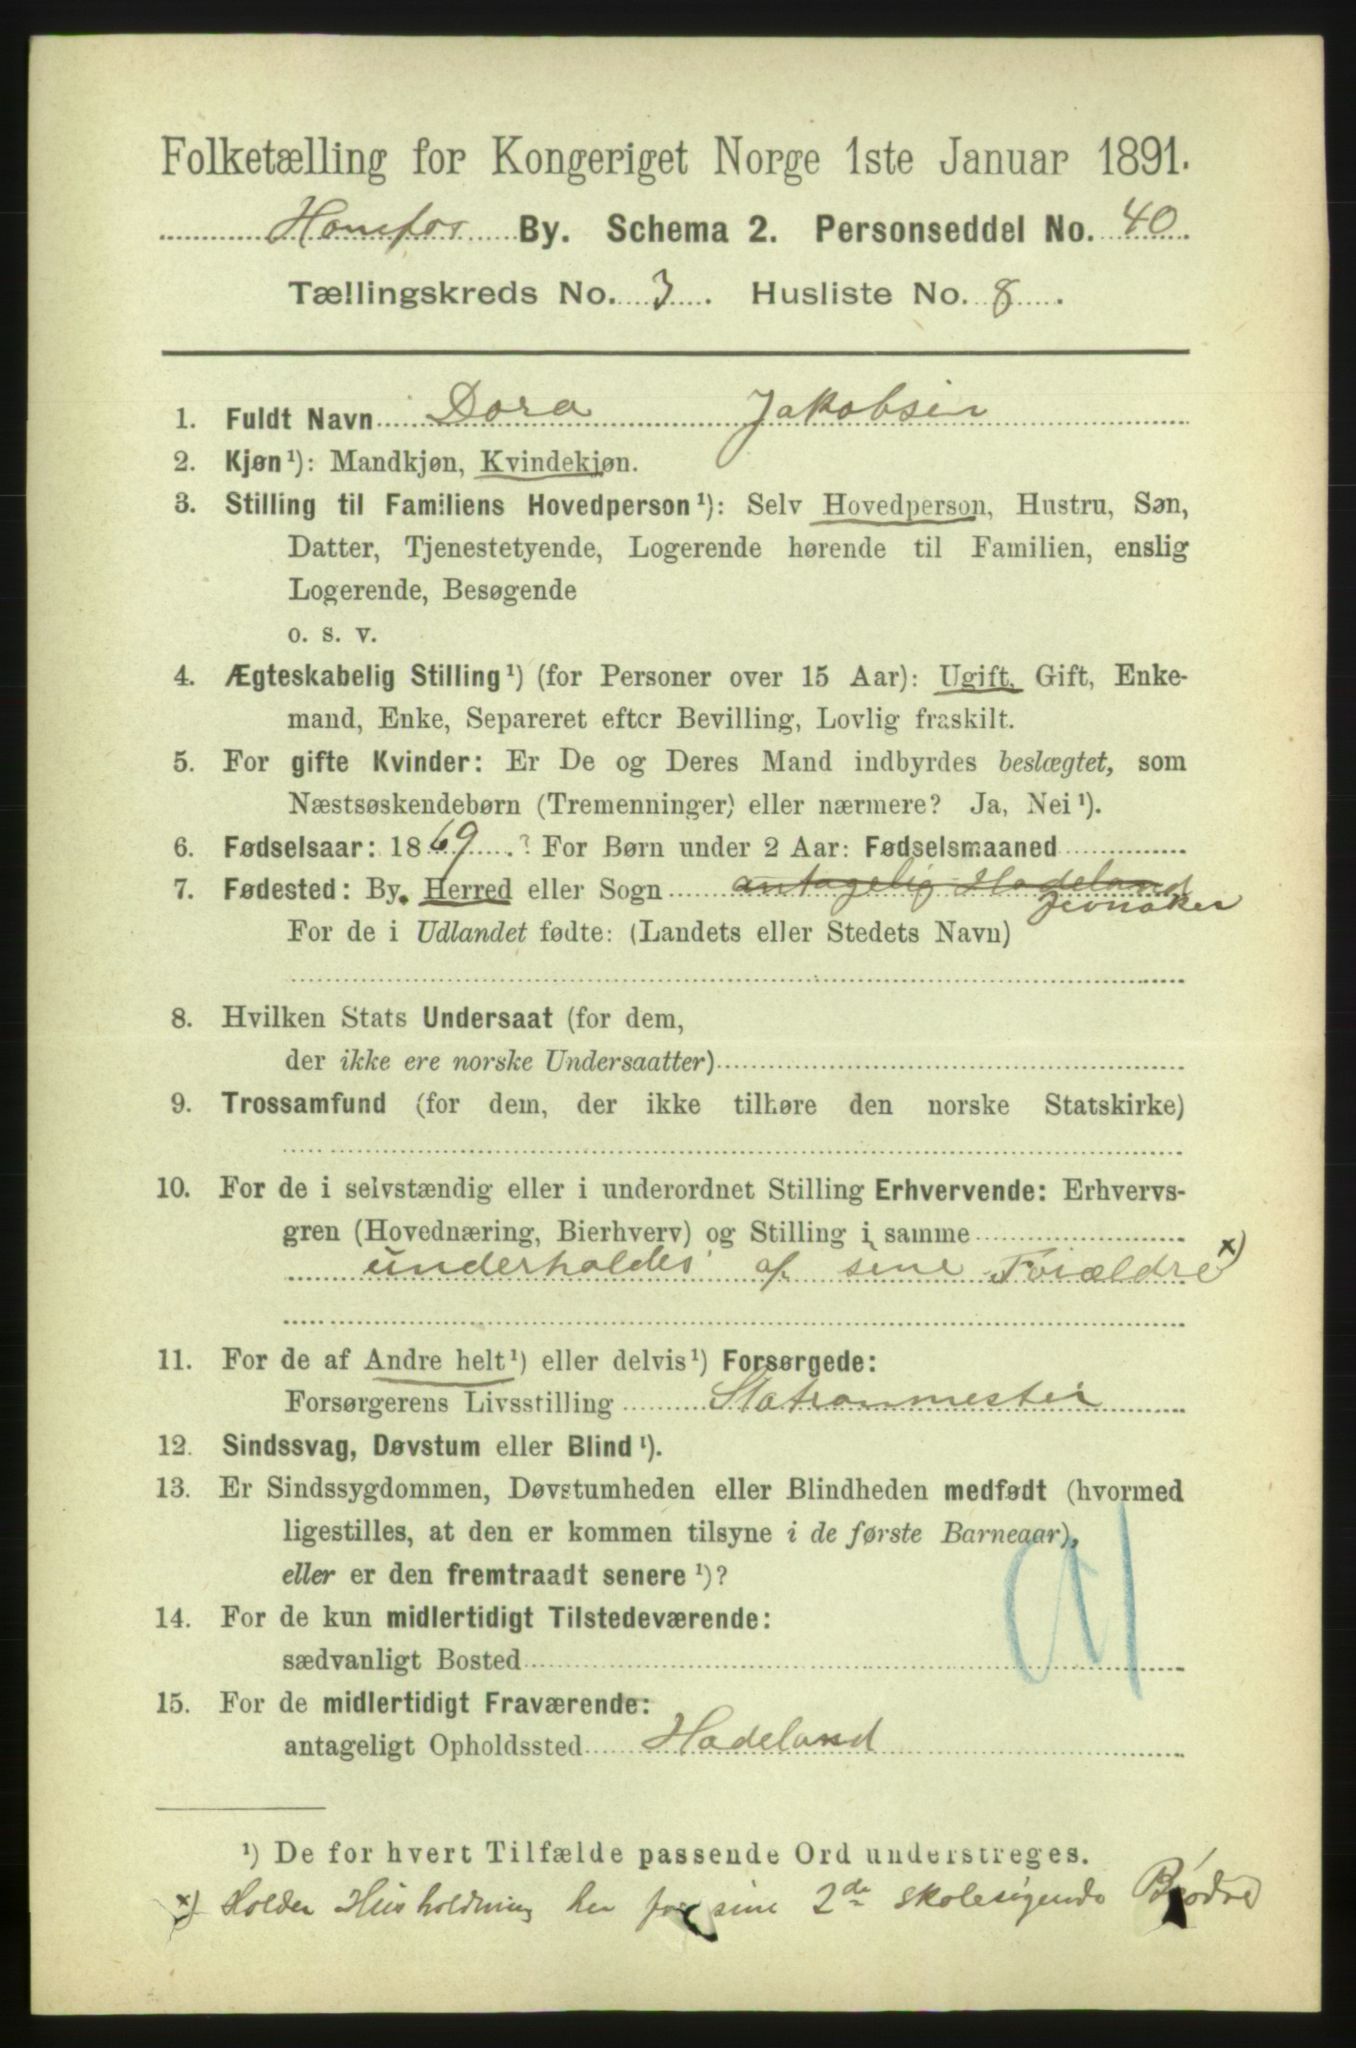 Folketælling for Kongeriget Norge 1ste Januar 1891.
Hønefos By. Schema 2. Personseddel No. 40
Tællingskreds No. 3. Husliste No. 8.
1. Fuldt Navn Dora Jakobsen
2. Kjøn¹): Mandkjøn, Kvindekjøn.
3. Stilling til Familiens Hovedperson¹): Selv Hovedperson, Hustru, Søn,
Datter, Tjenestetyende, Logerende hørende til Familien, enslig
Logerende, Besøgende
o. s. v.
4. Ægteskabelig Stilling¹) (for Personer over 15 Aar): Ugift, Gift, Enke-
mand, Enke, Separeret efter Bevilling, Lovlig fraskilt.
5. For gifte Kvinder: Er De og Deres Mand indbyrdes beslægtet, som
Næstsøskendebørn (Tremenninger) eller nærmere? Ja, Nei¹).
6. Fødselsaar: 1869.? For Børn under 2 Aar: Fødselsmaaned
7. Fødested: By, Herred eller Sogn antagelig Hadeland
Jevnaker
For de i Udlandet fødte: (Landets eller Stedets Navn)
8. Hvilken Stats Undersaat (for dem,
der ikke ere norske Undersaatter)
9. Trossamfund (for dem, der ikke tilhøre den norske Statskirke)
10. For de i selvstændig eller i underordnet Stilling Erhvervende: Erhvervs-
gren (Hovednæring, Bierhverv) og Stilling i samme
underholdes af sine Forældre x)
11. For de af Andre helt¹) eller delvis¹) Forsørgede:
Forsørgerens Livsstilling Stationmester
12. Sindssvag, Døvstum eller Blind¹).
13. Er Sindssygdommen, Døvstumheden eller Blindheden medfødt (hvormed
ligestilles, at den er kommen tilsyne i de første Barneaar),
eller er den fremtraadt senere¹)?
14. For de kun midlertidigt Tilstedeværende:
sædvanligt Bosted
15. For de midlertidigt Fraværende:
antageligt Opholdssted Hadeland
¹) De for hvert Tilfælde passende Ord understreges.
x) Holder Husholdning her for sine 2de skolesøgende Brødre